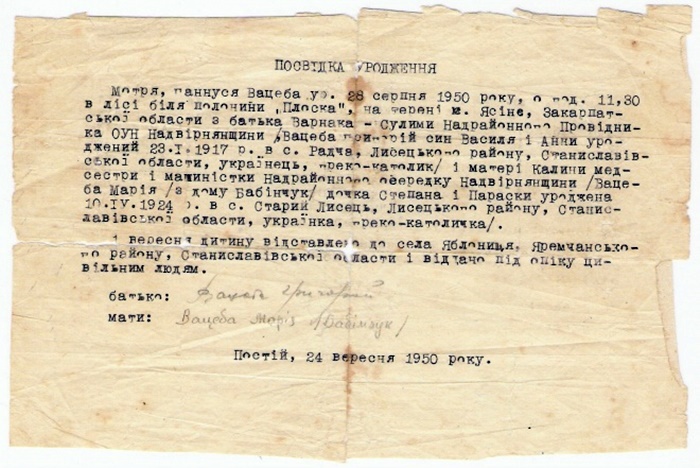 ПОСВІДКА УРОДЖЕННЯ
Мотря, ганнуся Вацеба ур. 28 серпня 1950 року, о год. 11,30
в лісі біля полонини „Плоска", на терені м. Ясіня, Закарпат-
ської области з батька Варнака - Сулими Надрайонного Провідни-
ка ОУН Надвірнянщини /Вацеба григорій син Василя і Анни уро-
джений 23.I.1917 р. в с. Радча, Лисецького району, Станиславів-
ської области, українець, греко-католик/ і матері Калини мед-
сестри і машиністки Надрайонного осередку Надвірнянщини /Ваце-
ба Марія /з дому Бабінчук/ дочка Степана і Параски уроджена
10.IV.1924 р. в с. Старий Лисець, Лисецького району, Станис-
лавівської области, українка, греко-католичка/.
1 вересня дитину відставлено до села Яблониця, Яремчансько-
го району, Станиславівської области і віддано під опіку ци-
вільним людям.
батько: Вацеба Григорий
мати: Вацеба Марія /Бабінчук/
Постій, 24 вересня 1950 року.